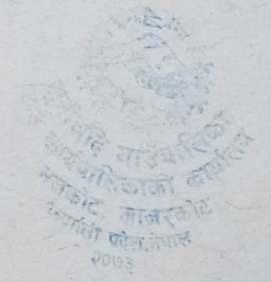 गाउँपालिका
कार्यपालिकाको कार्यालय
मजकोट, जाजरकोट
कर्णाली प्रदेश, नेपाल
२०७३